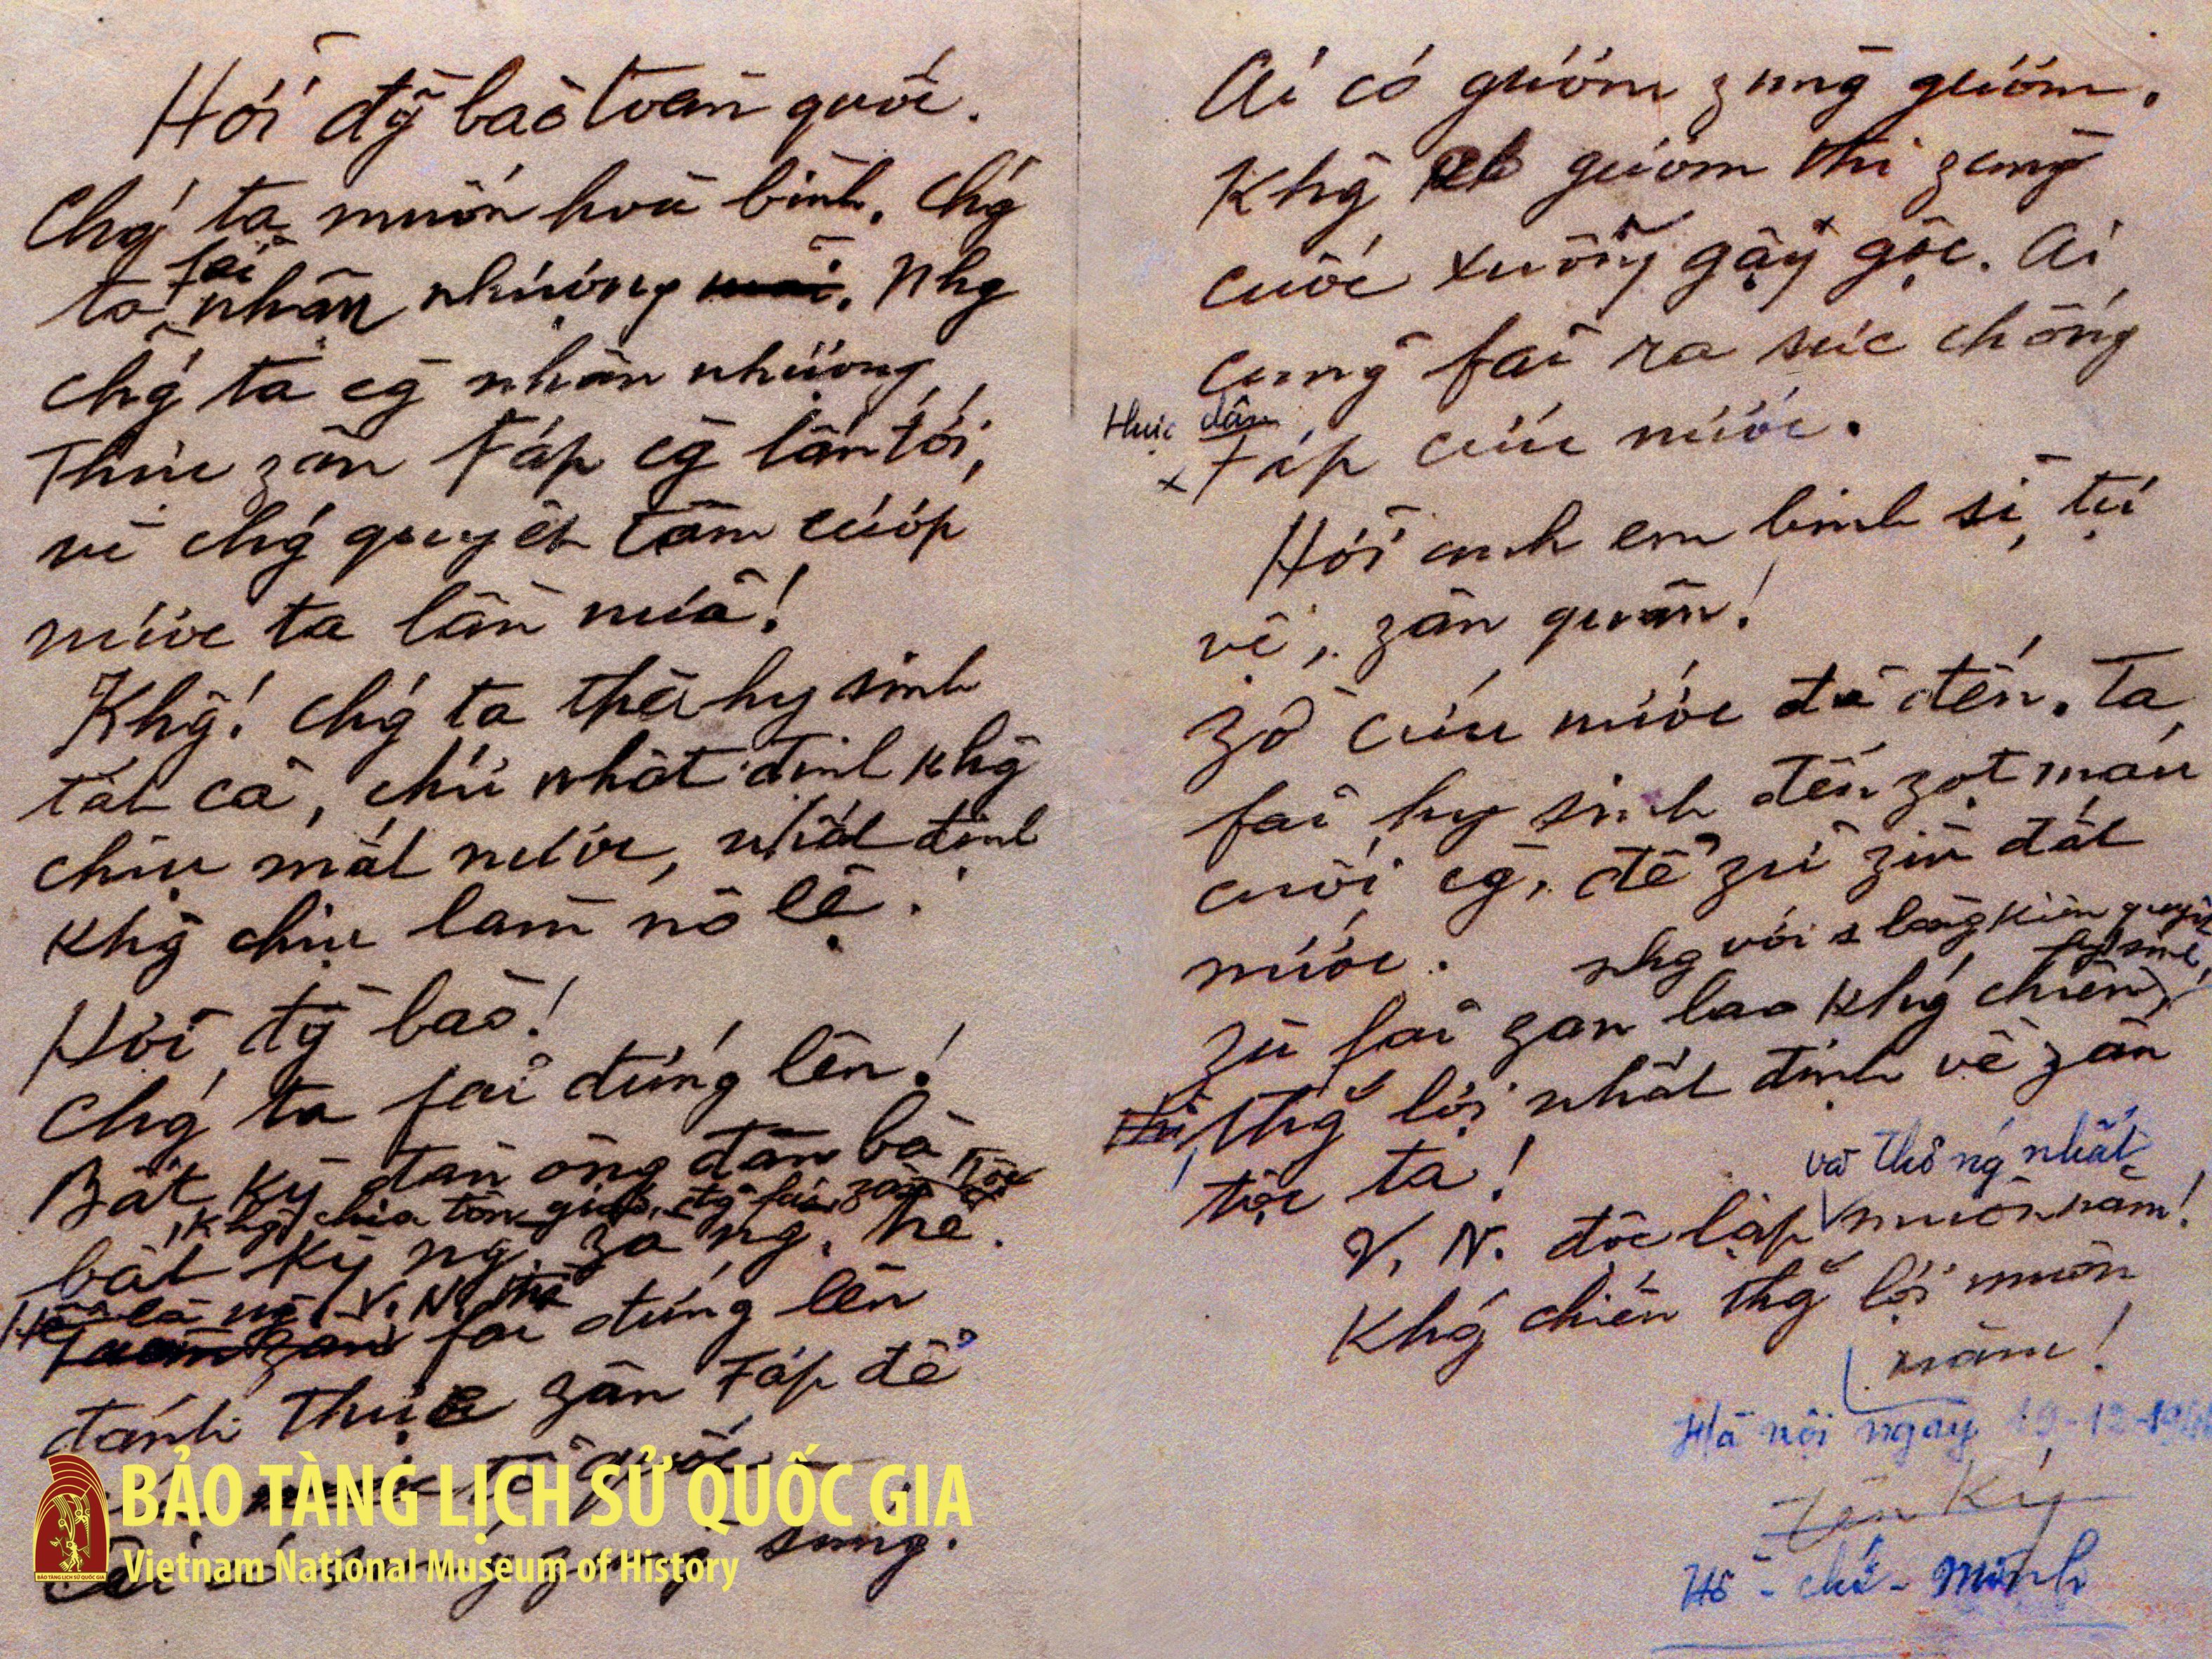 Hỡi đg̀ baò toàn quốc.
Chǵ ta muốn hoà bình, Chǵ
fải
ta nhân nhượng. Nhg
chǵ ta cg̀ nhân nhượng,
Thực zân Fáp cg̀ lấn tới,
vì chǵ quyết tâm cướp
nước ta lần nữa!
Khg! Chǵ ta thà hy sinh
tất cả, chứ nhất định khg
chịu mất nước, nhất định
khg chịu làm nô lệ.
Hỡi đg̀ bào!
Chǵ ta fải đứng lên!
Bất kỳ đàn ông đàn bà
, khg chia tôn giáo, đg̉ fái, zân tộc
bất kỳ ng. zà ng. trẻ.
Hễ là ng. V.N. thì
fải đứng lên
đánh thực zân Fáp để
tổ quốc
Ai có súng zùng súng.
BẢO TÀNG LỊCH SỬ QUỐC GIA
Vietnam National Museum of History
BẢO TÀNG LỊCH SỬ QUỐC GIA
Ai có gươm zùng gươm.
Khg gươm thì zùng
cuốc xuổng gậy gộc. Ai
cũng fải ra sức chống
thực dân
Fáp cứu nước.
Hỡi anh em binh sĩ, tự
vệ, zân quân!
Zờ cứu nước đã đến. Ta
fải hy sinh đến zọt máu
cuối cg̀, để zữ zìn đất
nước.
nhg với 1 lòng kiên quyết
hy sinh,
Zù fải zan lao khǵ chiến,
thg̃ lợi nhất định về zân
tộc ta!
và thống nhất
V.N. độc lập muôn năm!
Khǵ chiến thg̃ lợi muôn
năm!
Hà nội ngày 19-12-19
Tên Ký
Hồ-chí-minh